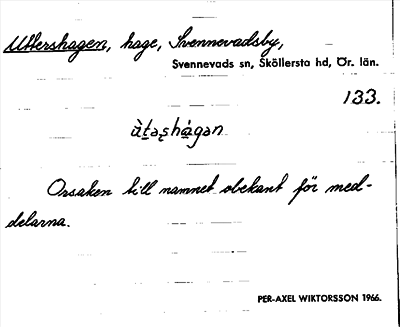 Uttershagen, hage, Svennevadsby,
Svennevads sn, Sköllersta hd, Ör. län.
133.
ùtəshágən
Orsaken till namnet obekant för med-
delarna.
PER-AXEL WIKTORSSON 1966.